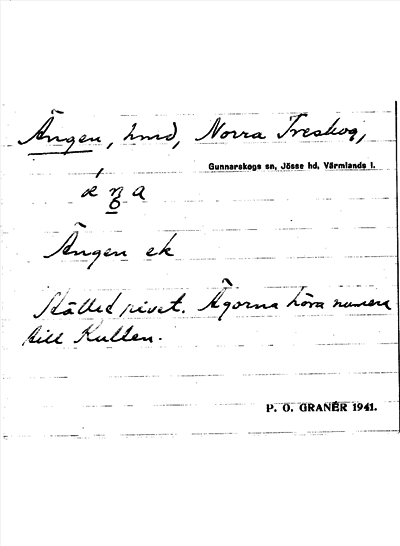 Ängen, hmd, Norra Treskog,
Gunnarskogs sn, Jösse hd, Värmlands l.
Ängen ek
Stället rivet. Ägorna höra numera
till Kullen.
P. O. GRANÉR 1941.